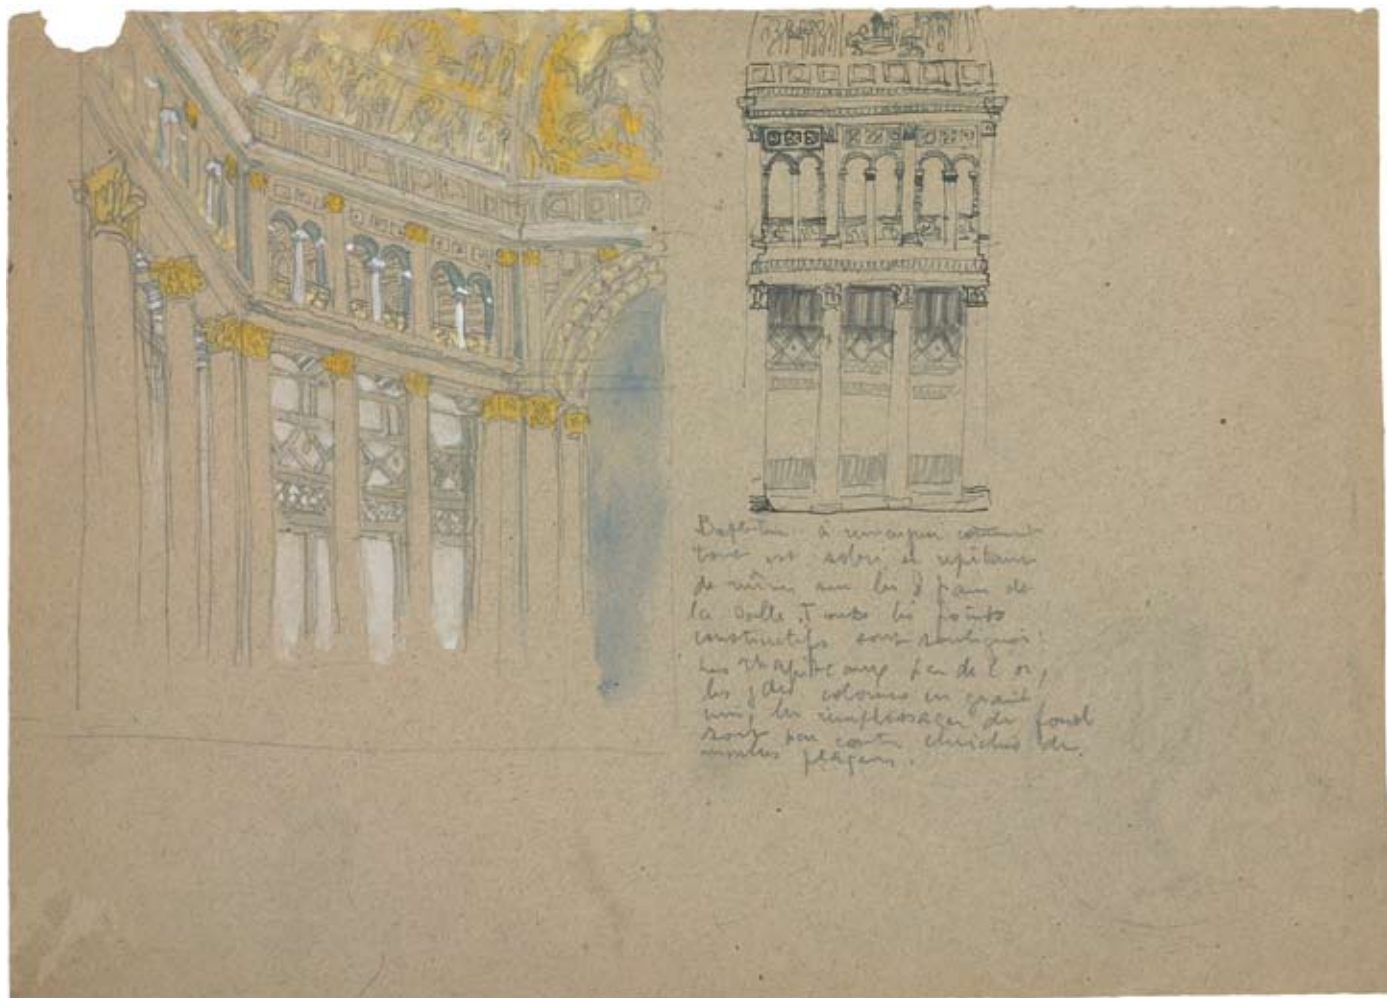 Baptistère à remarquer comment
tout est sobre et répétant
de même sur les 8 pans de
la salle. Toutes les points
constructifs sont soulignés :
Les chapiteaux par de l'or,
les colonnes en granit
uni, les remplissages du fond
sont par contre enrichis de
marbres plaqués.